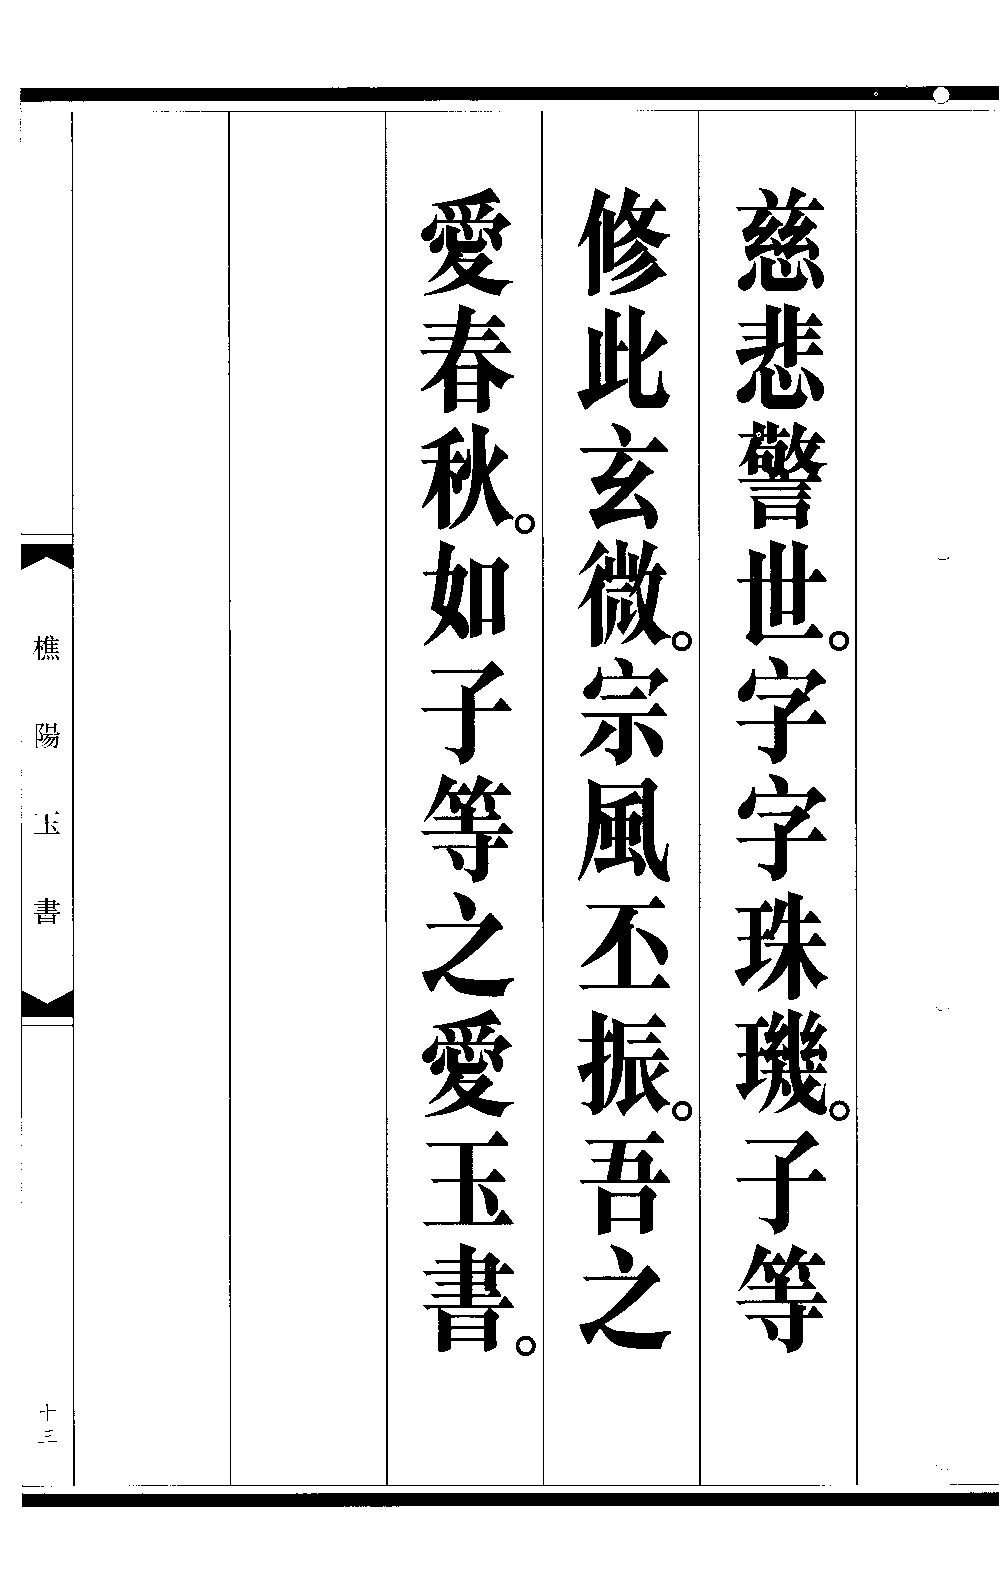 慈悲警世。字字珠璣。子等
修此玄微。宗風丕振。吾之
愛春秋。如子等之愛玉書。
樵陽玉書
十三